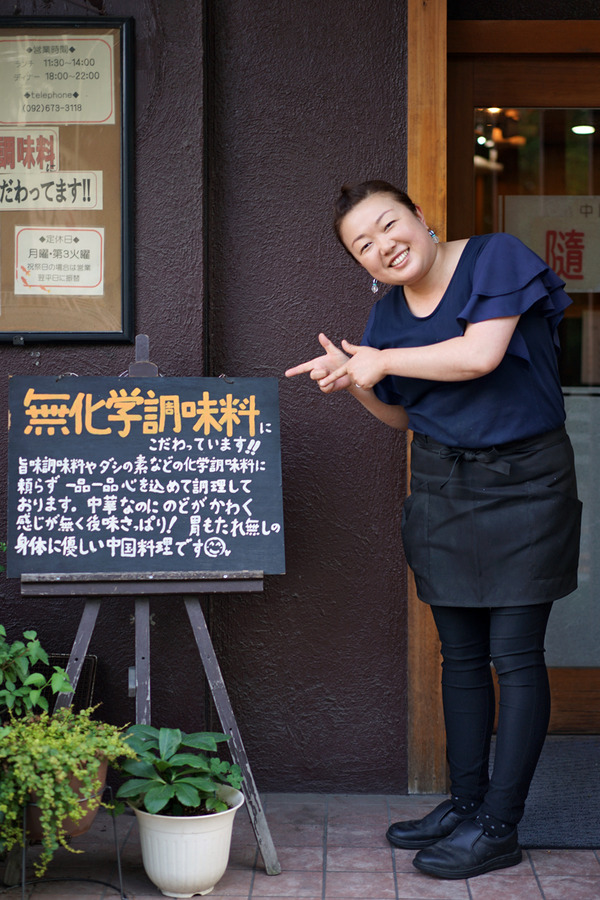 ◆営業時間◆
ランチ 11:30~14:00
ディナー 18:00~22:00
◆telephone◆
(092)673-3118
調味料に
だわってます!!
◆定休日◆
月曜・第3火曜
祝祭日の場合は営業
翌平日に振替
無化学調味料に
こだわっています!!
旨味調味料やダシの素などの化学調味料に
頼らず一品一品心を込めて調理して
おります。中華なのにのどがかわく
感じが無く後味さっぱり!胃もたれ無しの
身体に優しい中国料理です
中
隨